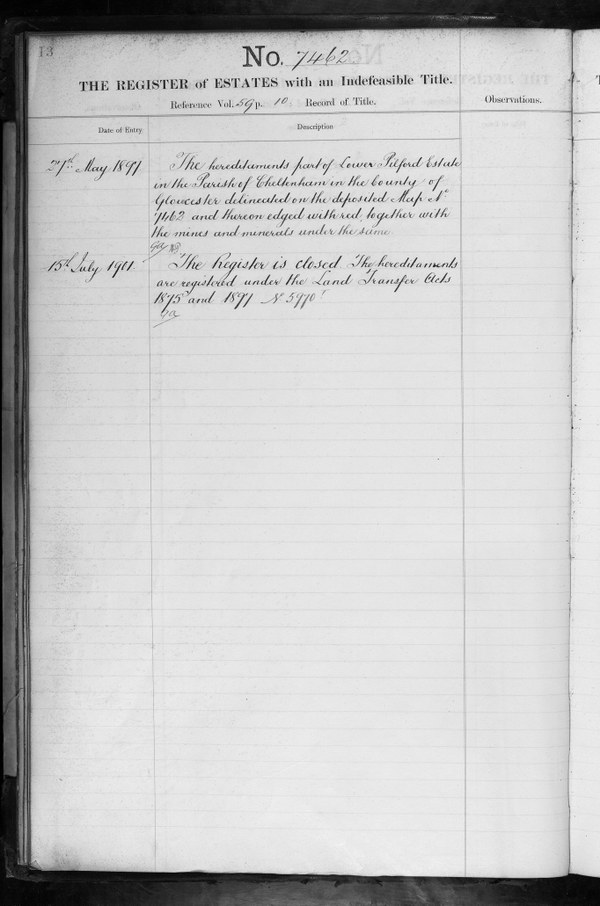 13
No. 7462
THE REGISTER of ESTATES with an Indefeasible Title.
Reference Vol. 59 p. 10 Record of Title.
Observations.
Date of Entry
Description
27th May 1897
The hereditaments part of Lower Pilford Estate
in the Parish of Cheltenham in the County of
Gloucester delineated on the deposited Map No
7462 and thereon edged with red, together with
the mines and minerals under the same.
15th July 1901.
The Register is closed. The hereditaments
are registered under the Land Transfer Acts
1875 and 1897 No 5970